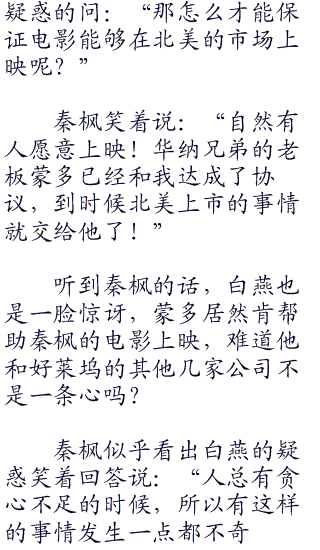 疑惑的问：“那怎么才能保
证电影能够在北美的市场上
映呢？”
秦枫笑着说：“自然有
人愿意上映！华纳兄弟的老
板蒙多已经和我达成了协
议，到时候北美上市的事情
就交给他了！”
听到秦枫的话，白燕也
是一脸惊讶，蒙多居然肯帮
助秦枫的电影上映，难道他
和好莱坞的其他几家公司不
是一条心吗？
秦枫似乎看出白燕的疑
惑笑着回答说：“人总有贪
心不足的时候，所以有这样
的事情发生一点都不奇